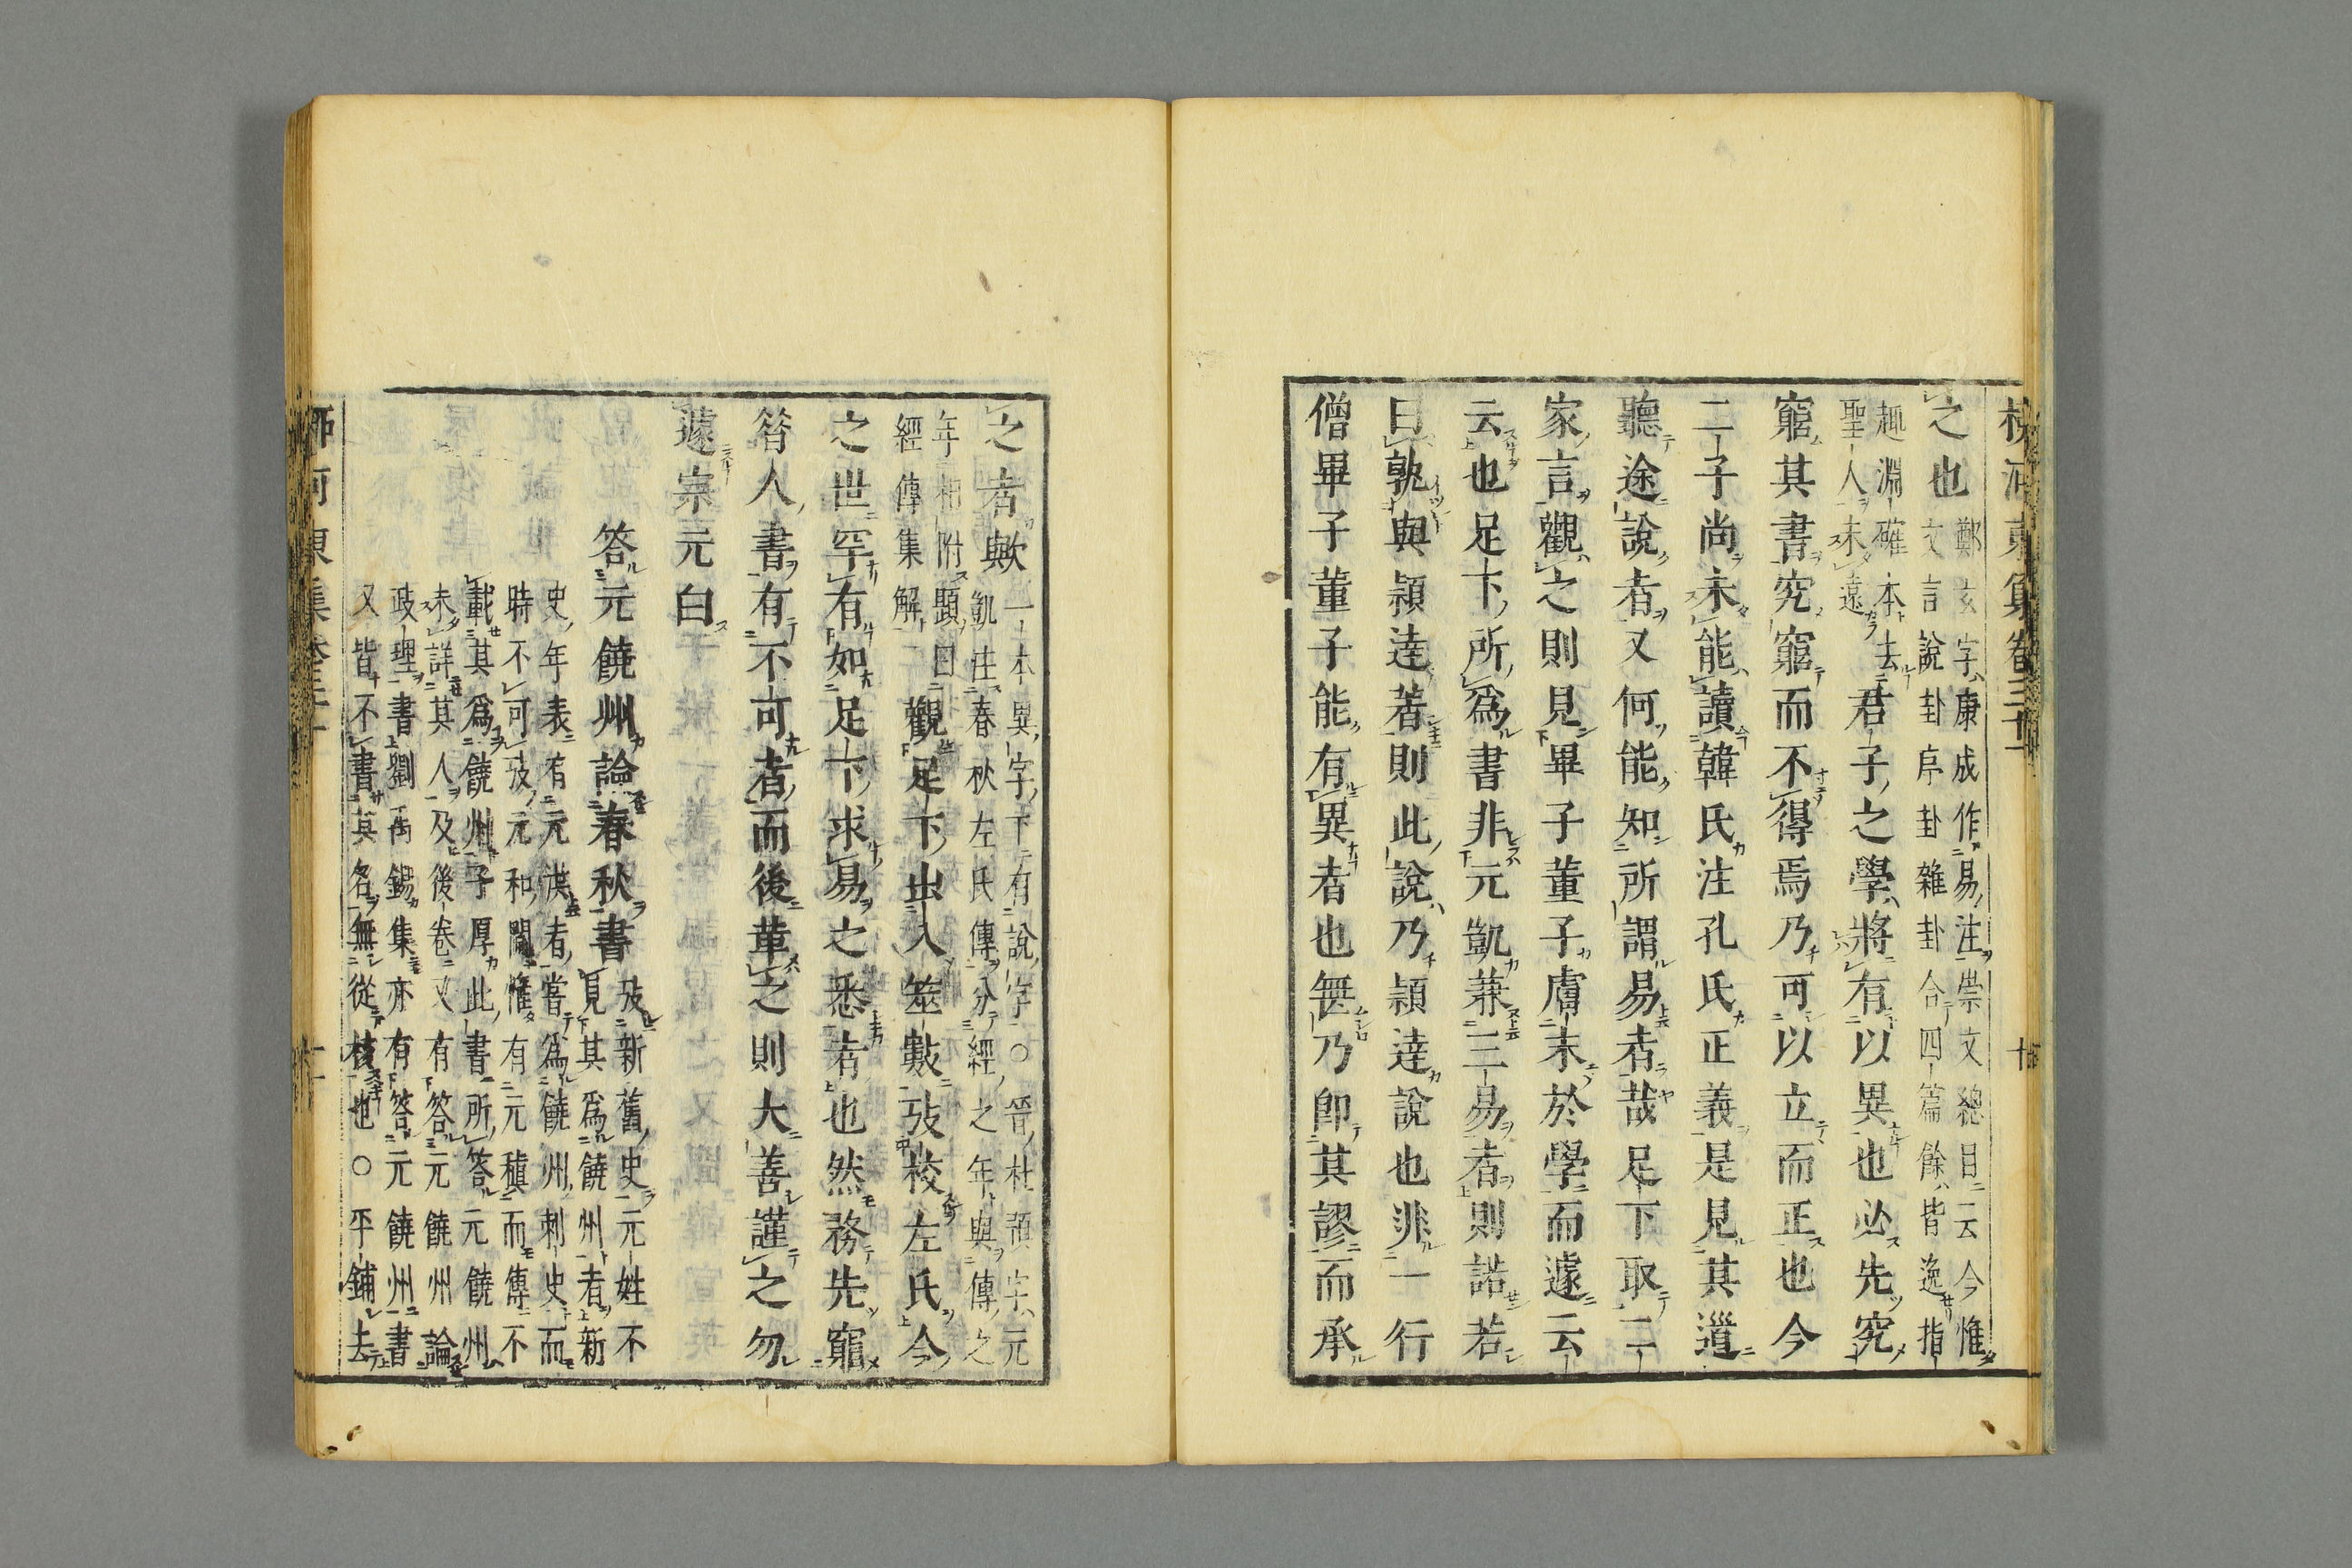 柳河東集卷三十一
之也
鄭玄字康成作易注崇文總目云今惟
文言說卦序卦雜卦合四篇餘皆逸指
趣淵確本去
聖人未遠
君子之學將有以異也必先究
窮其書究窮而不得焉乃可以立而正也今
二子尚未能讀韓氏注孔氏正義是見其道
聽途說者又何能知所謂易者哉足下取二
家言觀之則見畢子董子膚末於學而遽云
云也足下所為書非元凱兼三易者則諾若
曰孰與頴達著則此說乃頴達說也非一行
僧畢子董子能有異者也無乃卽其謬而承
之者歟
一本異字下有說字○晉杜預字元
凱注春秋左氏傳分經之年與傳之
年相附題曰
經傳集解
觀足下出入筮數攷校左氏今
之世罕有如足下求易之悉者也然務先窮
昝人書有不可者而後革之則大善謹之勿
遽宗元白
答元饒州論春秋書
攷新舊史元姓不
見其為饒州者新
史年表有元洪者嘗為饒州刺史而
時不可攷元和閒惟有元稹而傳不
載其為饒州子厚此書所答元饒州
未詳其人及後卷又有答元饒州論
政理書劉禹錫集亦有答元饒州書
又皆不書其名無從核也○平鋪去
柳河東集卷三十一
十一